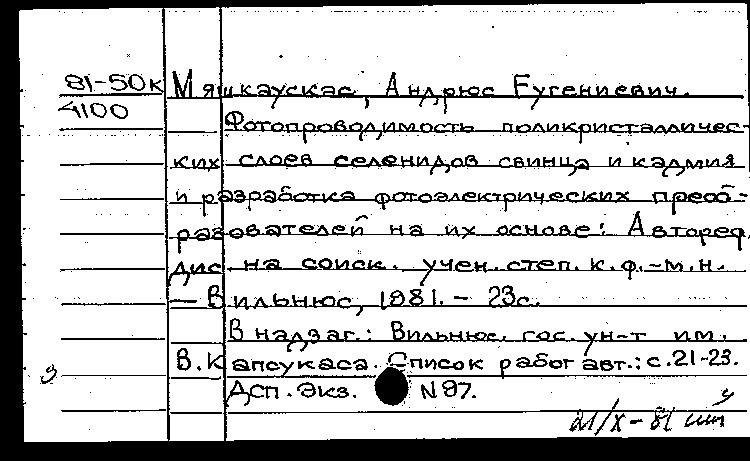 81-50к Мяшкаускас, Андрюс Еугениевич.
4100
Фотопроводимость поликристалличес-
ких слоев селенидов свинца и кадмия
и разработка фотоэлектрических преоб-
разователей на их основе: Автореф.
дис. на соиск. учен. степ. к.ф.-м.н.
— Вильнюс, 1981. - 23с.
В надзаг.: Вильнюс. гос. ун-т им.
В. Капсукаса. Список работ авт.: с. 21-23.
Дсп. Экз. N 97.
21/X - 81